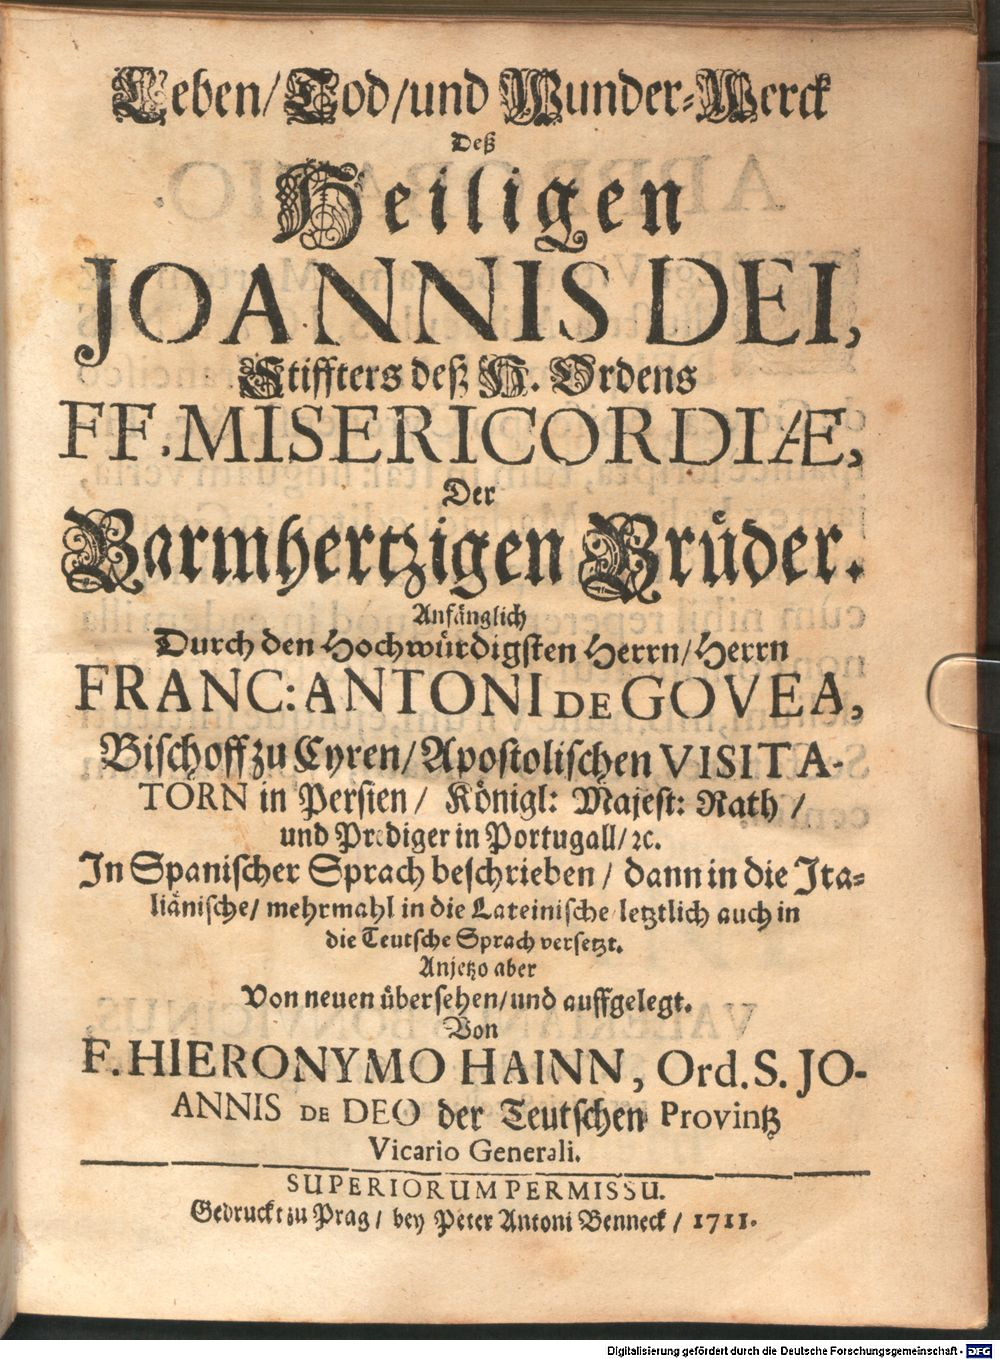 Leben/ Tod/ und Wunder-Werck
Deß
Heiligen
JOANNIS DEI,
Stiffters deß H. Ordens
FF. MISERICORDIÆ,
Der
Barmhertzigen Brüder.
Anfänglich
Durch den Hochwürdigsten Herrn/ Herrn
FRANC: ANTONI DE GOVEA,
Bischoff zu Cyren/ Apostolischen VISITA-
TORN in Persien/ Königl: Majest: Rath/
und Prediger in Portugall/ ꝛc.
In Spanischer Sprach beschrieben/ dann in die Ita-
liänische/ mehrmahl in die Lateinische/ letztlich auch in
die Teutsche Sprach versetzt.
Anjetzo aber
Von neuen übersehen/ und auffgelegt.
Von
F. HIERONYMO HAINN, Ord. S. JO-
ANNIS DE DEO der Teutschen Provintz
Vicario Generali.
SUPERIORUM PERMISSU.
Gedruckt zu Prag/ bey Peter Antoni Benneck/ 1711.
Digitalisierung gefördert durch die Deutsche Forschungsgemeinschaft - DFG